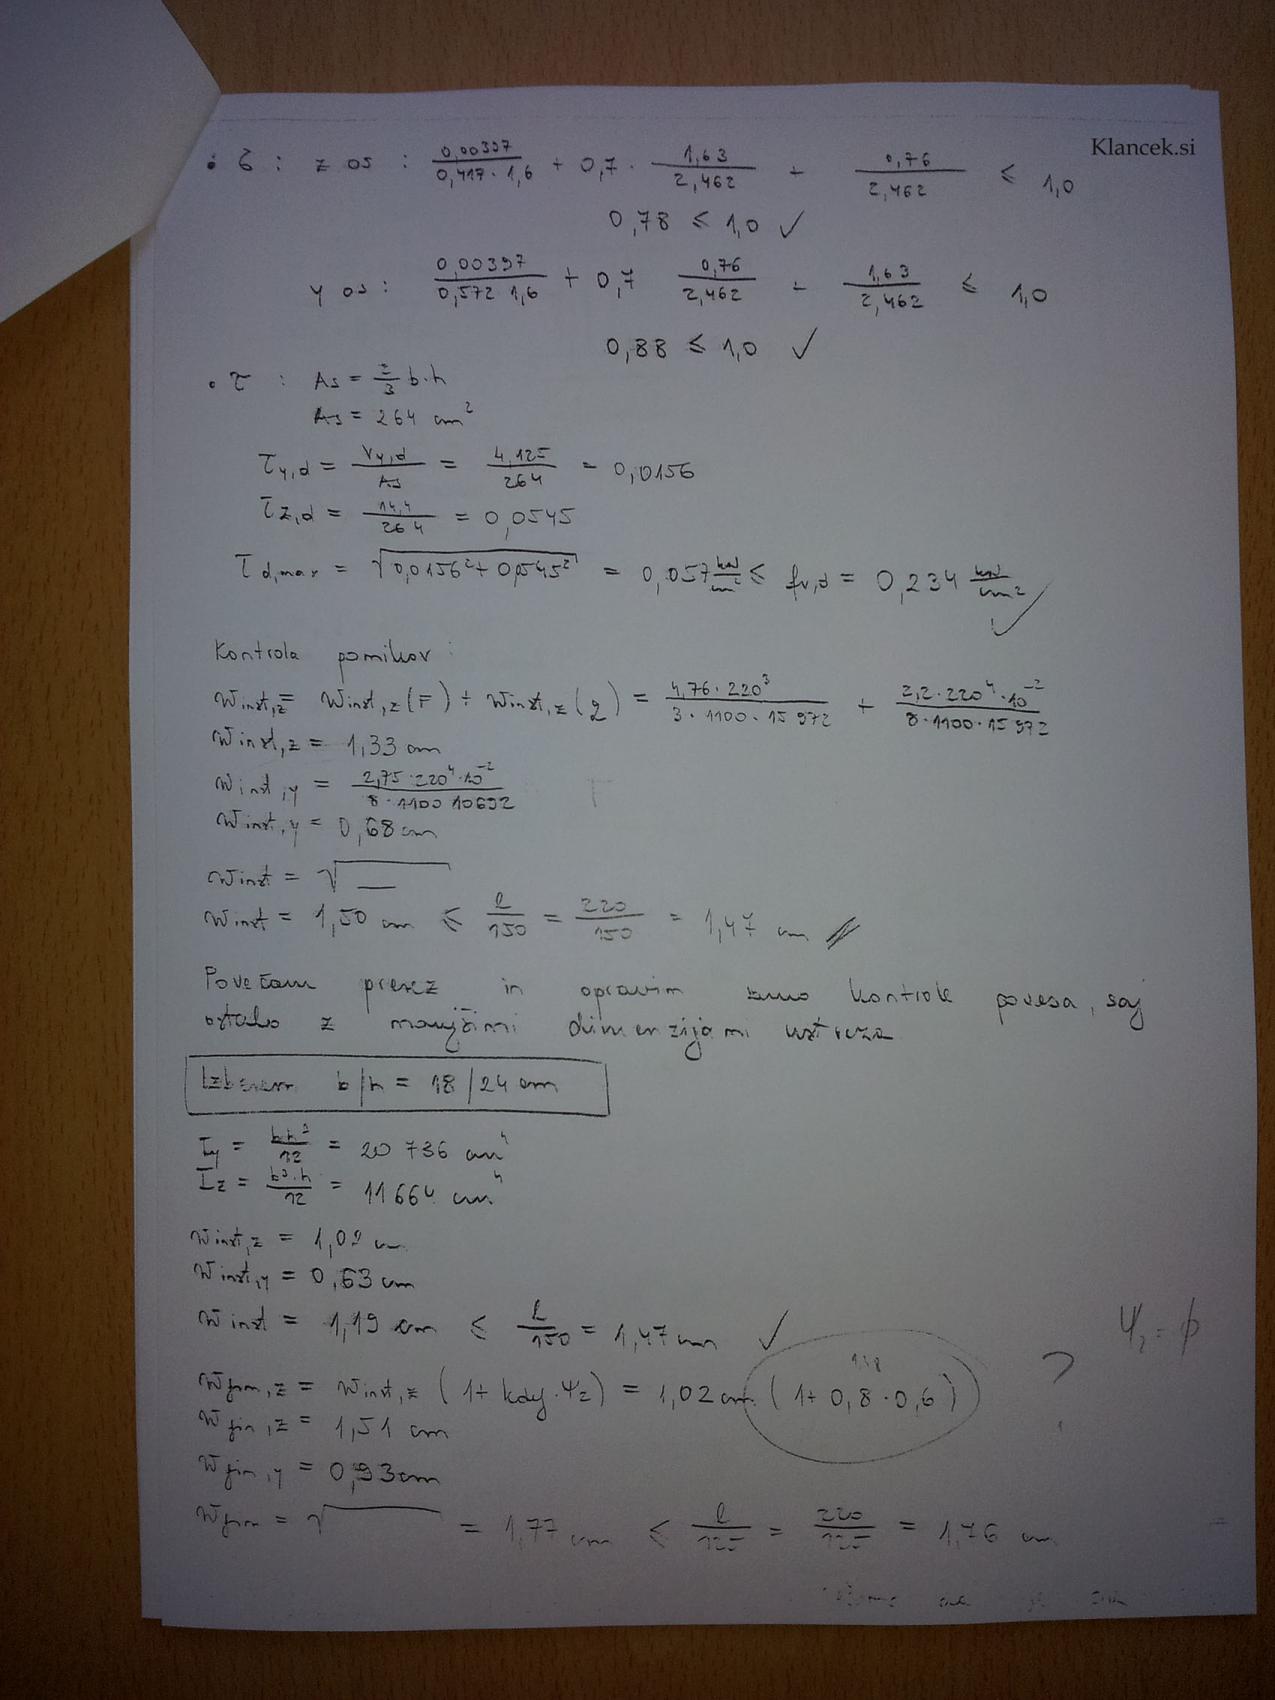 Klancek.si
• σ : z os : 0,00397 / 0,417 · 1,6 + 0,7 · 1,63 / 2,462 + 0,76 / 2,462 ≤ 1,0
0,78 ≤ 1,0 ✓
y os : 0,00397 / 0,572 1,6 + 0,7 0,76 / 2,462 - 1,63 / 2,462 ≤ 1,0
0,88 ≤ 1,0 ✓
• τ : As = 2/3 b·h
As = 264 cm²
τy,d = Vy,d / As = 4,125 / 264 = 0,0156
τz,d = 14,4 / 264 = 0,0545
τd,max = √(0,0156² + 0,0545²) = 0,057 kN/cm² ≤ fv,d = 0,234 kN/cm² ✓
Kontrola pomikov :
winst,z = winst,z (F) + winst,z (q) = 4,76 · 220³ / 3 · 1100 · 15 972 + 2,2 · 220⁴ · 10⁻² / 8 · 1100 · 15 972
winst,z = 1,33 cm
winst,y = 2,75 · 220⁴ · 10⁻² / 8 · 1100 10692
winst,y = 0,68 cm
winst = √
winst = 1,50 cm ≤ l/150 = 220/150 = 1,47 cm
Povečam prerez in opravim samo kontrole povesa, saj
ostalo z manjšimi dimenzijami ustreza
Izberem b/h = 18/24 cm
Iy = bh³/12 = 20 736 cm⁴
Iz = b³·h/12 = 11 664 cm⁴
winst,z = 1,02 cm
winst,y = 0,63 cm
winst = 1,19 cm ≤ l/150 = 1,47 cm ✓
ψ2 = φ
1,48
wfin,z = winst,z (1 + kdef · ψ2) = 1,02 cm (1 + 0,8 · 0,6) ?
wfin,z = 1,51 cm
wfin,y = 0,93 cm
wfin = √ = 1,77 cm ≤ l/125 = 220/125 = 1,76 cm